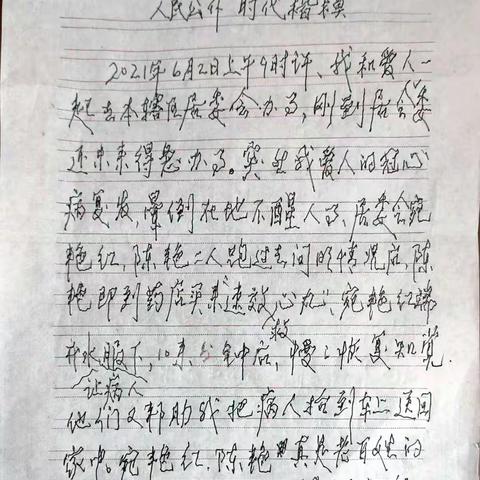 人民公仆 时代楷模
2021年6月2日上午9时许、我和爱人一
起去本辖区居委会办了,刚到居委会
还未来得急办了。突生我爱人的冠心
病复发,晕倒在地不醒人了、居委会宛
艳红,陈艳二人跑过去问明情况后,陈
艳即到药店买来"速效救心丸",宛艳红端
开水服下,10来分钟后,慢慢恢复知觉.
让病人
他们又帮助我把病人抬到车上送回
家中。宛艳红、陈艳真是老百姓的